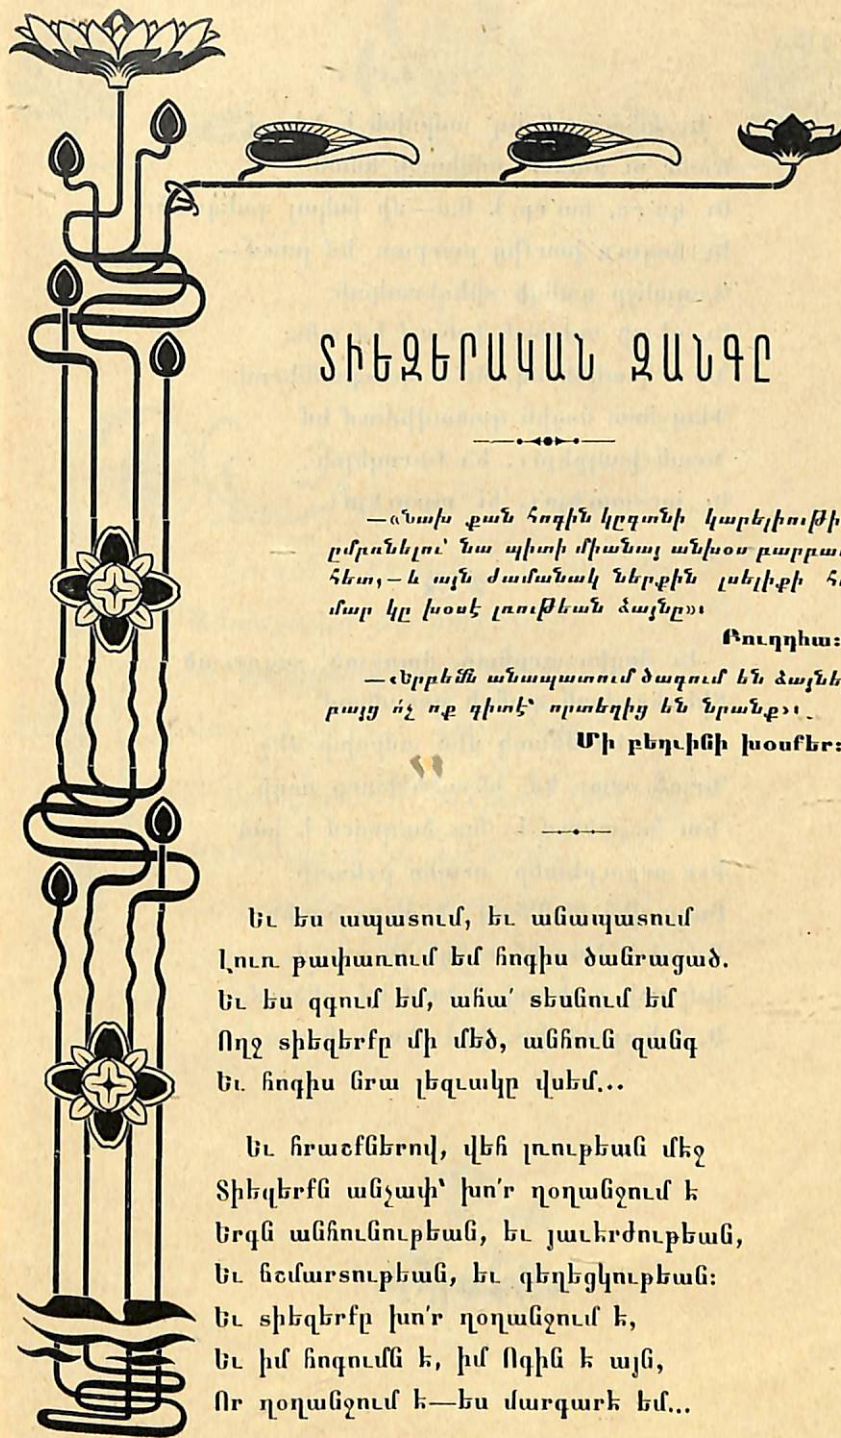 ՏԻԵԶԵՐԱԿԱՆ ԶԱՆԳԸ
—«Նախ քան հոգին կըգտնի կարելիութի
ըմբռնելու՝ նա պիտի միանայ անխօս բարբառ
հետ,— և այն ժամանակ ներքին լսելիքի հա
մար կը խօսէ լռութեան ձայնը»։
Բուդդհա:
—«Երբեմն անապատում ծագում են ձայնե
բայց ո՛չ ոք գիտէ՝ որտեղից են նրանք»։
Մի բեդւինի խօսքեր:
Եւ ես ապատում, եւ անապատում
Լուռ թափառում եմ հոգիս ծանրացած.
Եւ ես զգում եմ, ահա՛ տեսնում եմ
Ողջ տիեզերքը մի մեծ, անհուն զանգ
Եւ հոգիս նրա լեզւակը վսեմ...
Եւ հրաշքներով, վեհ լռութեան մէջ
Տիեզերքն անչափ՝ խո՛ր ղօղանջում է
Երգն անհունութեան, եւ յաւերժութեան,
Եւ ճշմարտութեան, եւ գեղեցկութեան:
Եւ տիեզերքը խո՛ր ղօղանջում է,
Եւ իմ հոգումն է, իմ Ոգին է այն,
Որ ղօղանջում է—ես մարգարէ եմ...